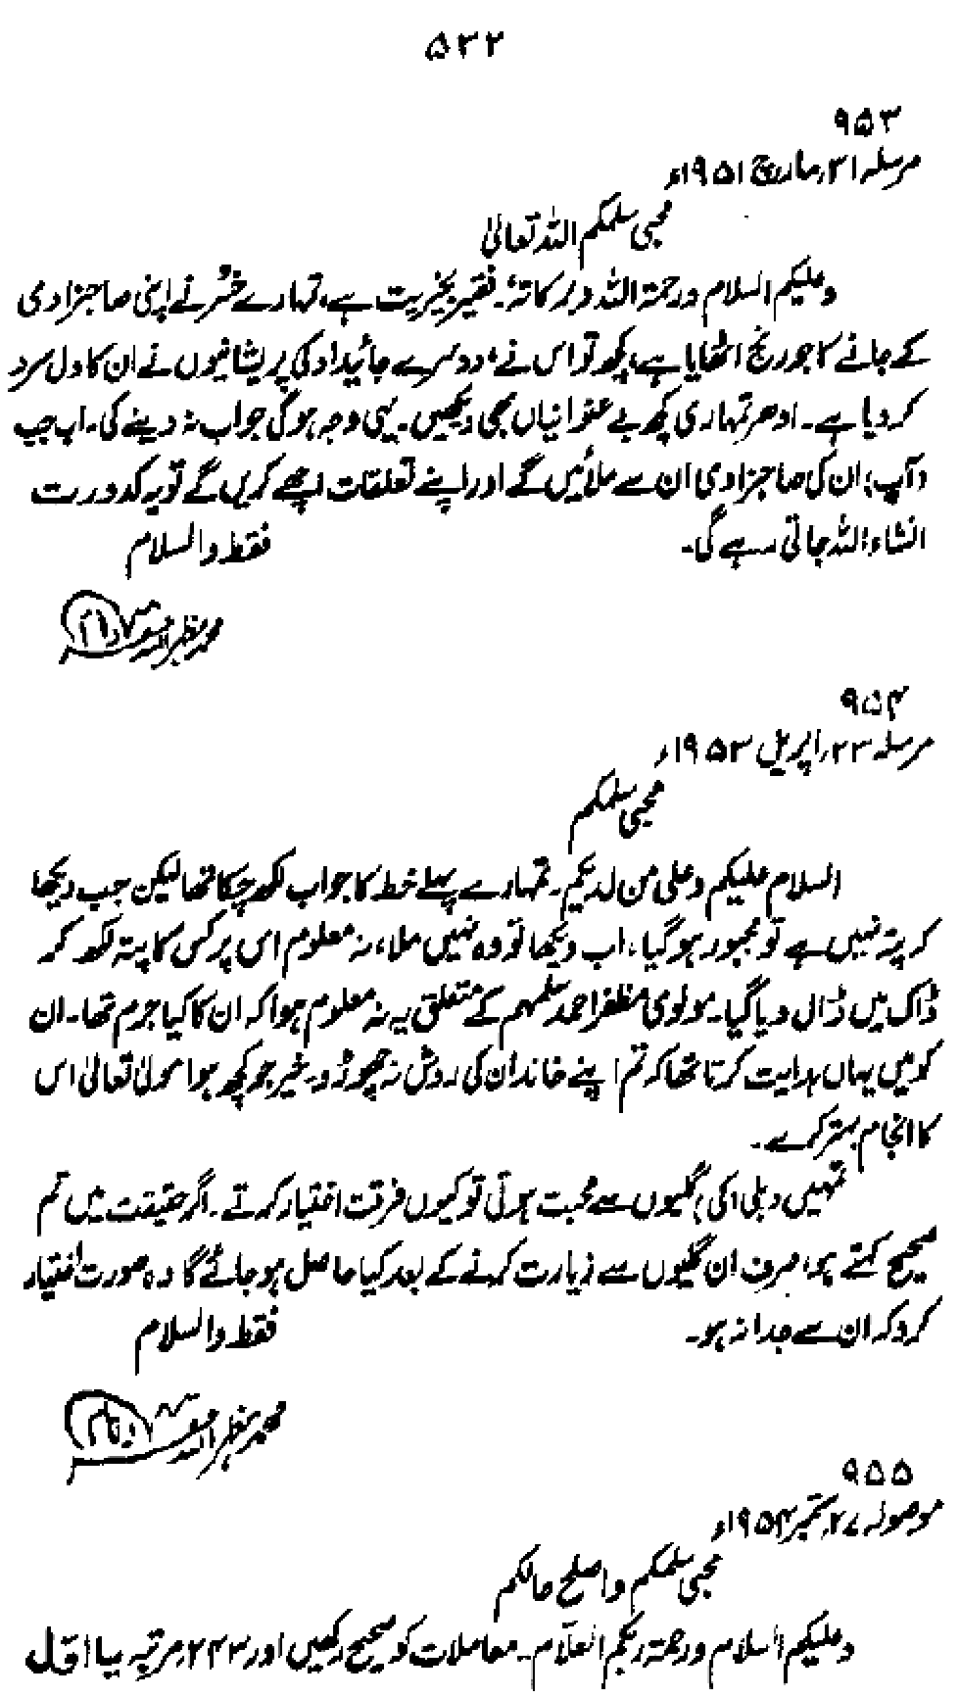 ۵۳۲
۹۵۳
مرسلہ ۲۱؍مارچ ۱۹۵۱ء
محبی سلمکم اللہ تعالیٰ
وعلیکم السلام ورحمۃ اللہ وبرکاتہٗ۔ فقیر بخیریت ہے، تمہارے خسُر نے اپنی صاحبزادی
کے جانے کا جو رنج اٹھایا ہے، کچھ تو اس نے، دوسرے جائیداد کی پریشانیوں نے ان کا دل سرد
کر دیا ہے۔ ادھر تمہاری کچھ بے عنوانیاں بھی دیکھیں۔ یہی وجہ ہوگی جواب نہ دینے کی۔ اب جب
(آپ) ان کی صاحبزادی ان سے ملائیں گے اور اپنے تعلقات اچھے کریں گے تو یہ کدورت
انشاء اللہ جاتی رہے گی۔ فقط والسلام
محمد مظہر اللہ
۹۵۴
مرسلہ ۲۳؍اپریل ۱۹۵۳ء
محبی سلمکم
السلام علیکم وعلی من لدیکم۔ تمہارے پہلے خط کا جواب لکھ چکا تھا لیکن جب دیکھا
کہ پتہ نہیں ہے تو مجبور ہو گیا، اب دیکھا تو وہ نہیں ملا، نہ معلوم اس پر کس کا پتہ لکھ کر
ڈاک میں ڈال دیا گیا۔ مولوی مظفر احمد سلمہم کے متعلق یہ نہ معلوم ہوا کہ ان کا کیا جرم تھا۔ ان
کو میں یہاں ہدایت کرتا تھا کہ تم اپنے خاندان کی روش نہ چھوڑو۔ خیر جو کچھ ہوا مولیٰ تعالیٰ اس
کا انجام بہتر کرے۔
تمہیں دہلی (کی) گلیوں سے محبت ہوتی تو کیوں فرقت اختیار کرتے۔ اگر حقیقت میں تم
صحیح کہتے ہو، صرف ان گلیوں سے زیارت کرنے کے بعد کیا حاصل ہو جائے گا وہ صورت اختیار
کرو کہ ان سے جدا نہ ہو۔ فقط والسلام
محمد مظہر اللہ
۹۵۵
موصولہ ۲۷؍ستمبر ۱۹۵۴ء
محبی سلمکم واصلح حالکم
وعلیکم السلام ورحمۃ ربکم العلّام۔ معاملات کو صحیح رکھیں اور ۲۴۳ مرتبہ یا اوّل